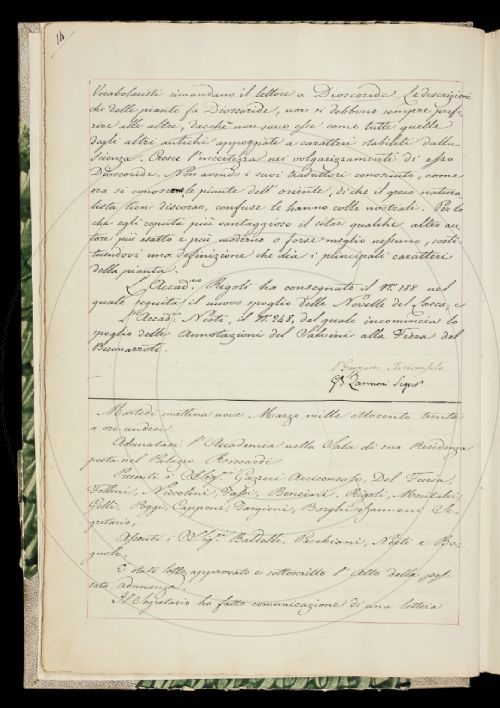 14
Vocabolaristi rimandano il lettore a Dioscoride. Le descrizioni
che delle piante fa Dioscoride, non si debbono sempre prefe-
rire alle altre, dacchè non sono esse come tutte quelle
degli altri antichi appoggiate a caratteri stabiliti dalla
Scienza. Cresce l'incertezza nei volgarizzamenti di esso
Dioscoride. Non avendo i suoi traduttori conosciuto, come
ora si conoscono le piante dell'oriente, di che il greco natura-
lista tien discorso, confuse le hanno colle nostrali. Per lo
che egli reputa più vantaggioso il citar qualche altro au-
tore più esatto e più moderno o forse meglio nessuno, sosti-
tuendovi una definizione che dia i principali caratteri
della pianta.
L'Accad.co Rigoli ha consegnato il N.o 188 nel
quale seguita il nuovo spoglio delle Novelle del Lasca, e
l'Accad.co Nesti, il N.o 248, dal quale incomincia lo
spoglio delle Annotazioni del Salvini alla Fiera del
Buonarroti.
Arciconsolo
GB Zannoni Segret.
Martedì mattina nove Marzo mille ottocento trenta
a ore undici
Adunatasi l'Accademia nella Sala di sua Residenza
posta nel Palazzo Riccardi
Presenti i Sigg.ri Gazzeri Arciconsolo, Del Furia,
Follini, Niccolini, Bencini, Rigoli, Montalvi,
Poggi, Capponi, Targioni, Borghi e Zannoni Se-
gretario,
Assenti i Sigg.ri Baldelli, Paschioni, Nesti e Ba-
gnoli.
È stato letto, approvato e sottoscritto l'Atto della pas-
sata adunanza.
Il Segretario ha fatto comunicazione di una lettera